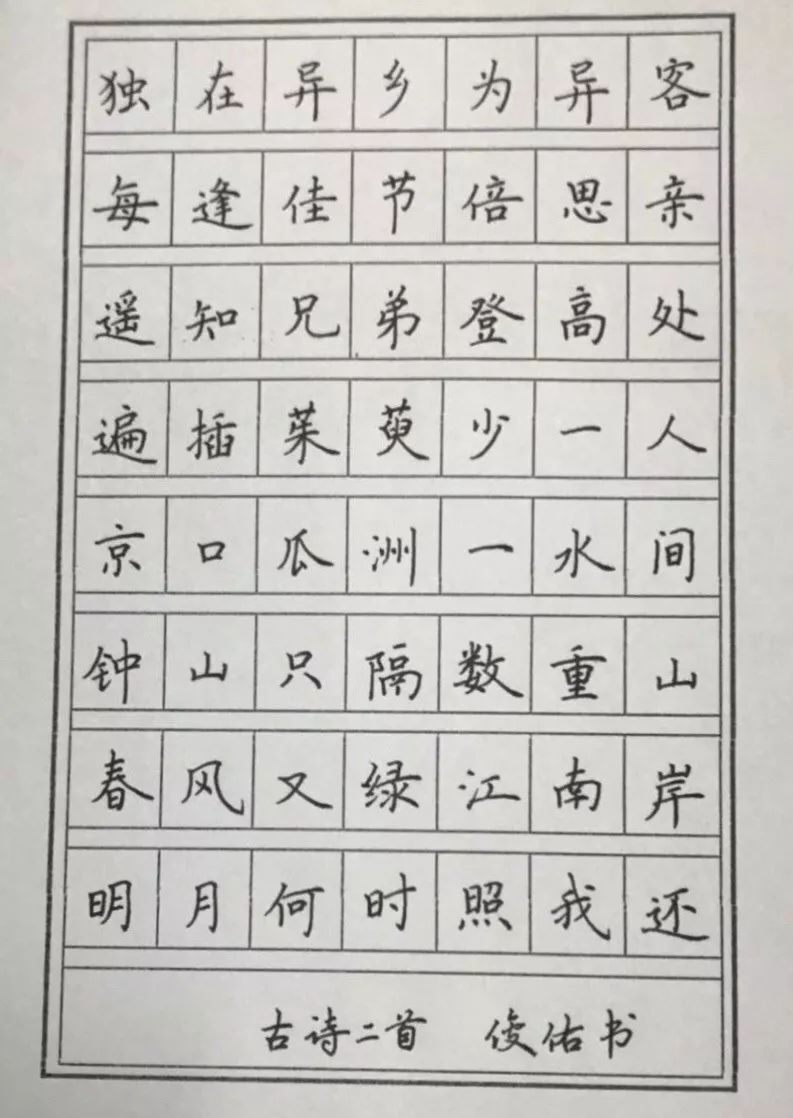 独在异乡为异客
每逢佳节倍思亲
遥知兄弟登高处
遍插茱萸少一人
京口瓜洲一水间
钟山只隔数重山
春风又绿江南岸
明月何时照我还
古诗二首 俊佑书